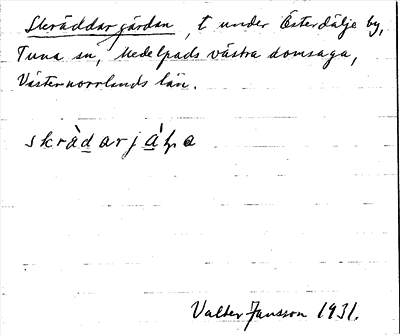 Skräddargärdan, t under Österdälje by,
Tuna sn, Medelpads västra domsaga,
Västernorrlands län.
Valter Jansson 1931.